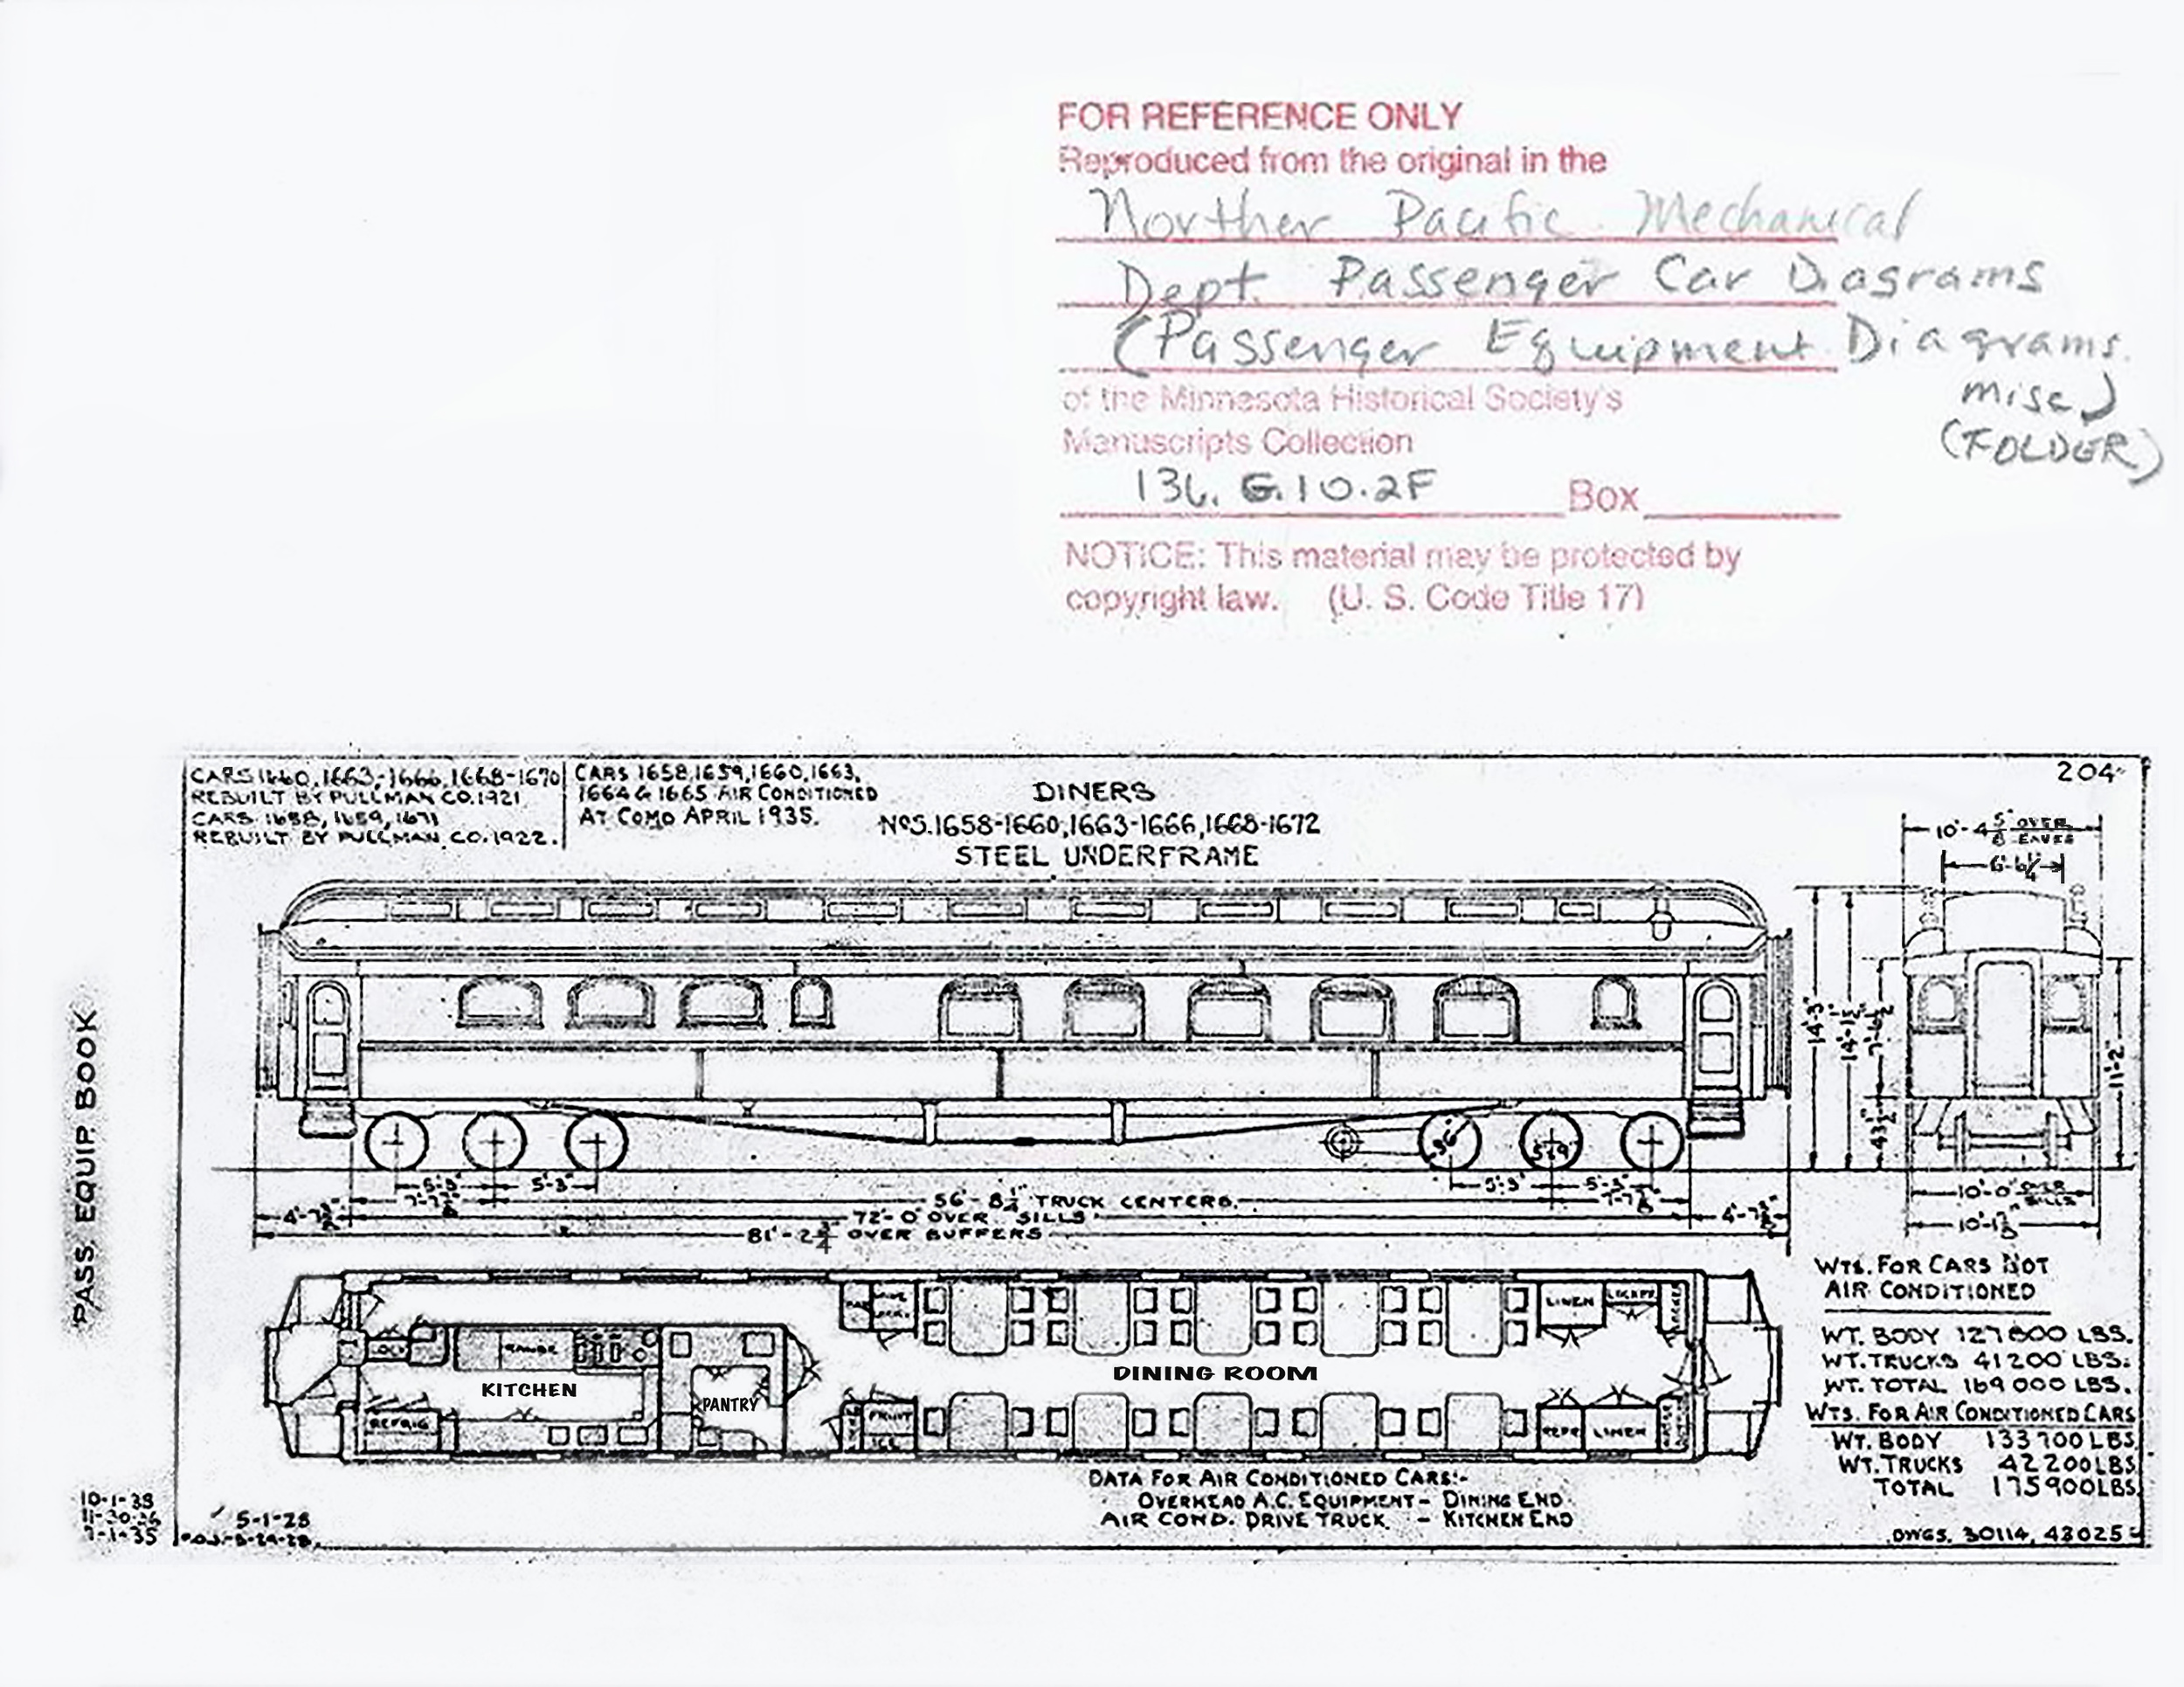 FOR REFERENCE ONLY
Reproduced from the original in the
Norther Pacific Mechanical
Dept. Passenger Car Diagrams
(Passenger Equipment Diagrams.
misc)
(FOLDER)
of the Minnesota Historical Society's
Manuscripts Collection
136. G.10.2F Box
NOTICE: This material may be protected by
copyright law. (U. S. Code Title 17)
204
CARS 1660, 1663-1666, 1668-1670
REBUILT BY PULLMAN CO. 1921
CARS 1658, 1659, 1671
REBUILT BY PULLMAN CO. 1922.
CARS 1658, 1659, 1660, 1663,
1664 & 1665 AIR CONDITIONED
AT COMO APRIL 1935.
DINERS
NOS. 1658-1660, 1663-1666, 1668-1672
STEEL UNDERFRAME
10'-4 5/8" OVER EAVES
6'-6 1/4"
14'-3"
11'-2"
43 1/2"
36"
5'-3" 5'-3" 5'-3"
56'-8 1/4" TRUCK CENTERS.
72'-0" OVER SILLS
81'-2 3/4" OVER BUFFERS
10'-0" OVER SILLS
PASS. EQUIP. BOOK
WTS. FOR CARS NOT
AIR CONDITIONED
WT. BODY 127800 LBS.
WT. TRUCKS 41200 LBS.
WT. TOTAL 169000 LBS.
WTS. FOR AIR CONDITIONED CARS
WT. BODY 133700 LBS.
WT. TRUCKS 42200 LBS.
TOTAL 175900 LBS.
LINEN LOCKER
RANGE
KITCHEN
PANTRY
DINING ROOM
REFRIG
LINEN
DATA FOR AIR CONDITIONED CARS:-
OVERHEAD A.C. EQUIPMENT - DINING END.
AIR COND. DRIVE TRUCK - KITCHEN END
10-1-38
11-30-36
7-1-35
5-1-28
DWGS. 30114, 43025